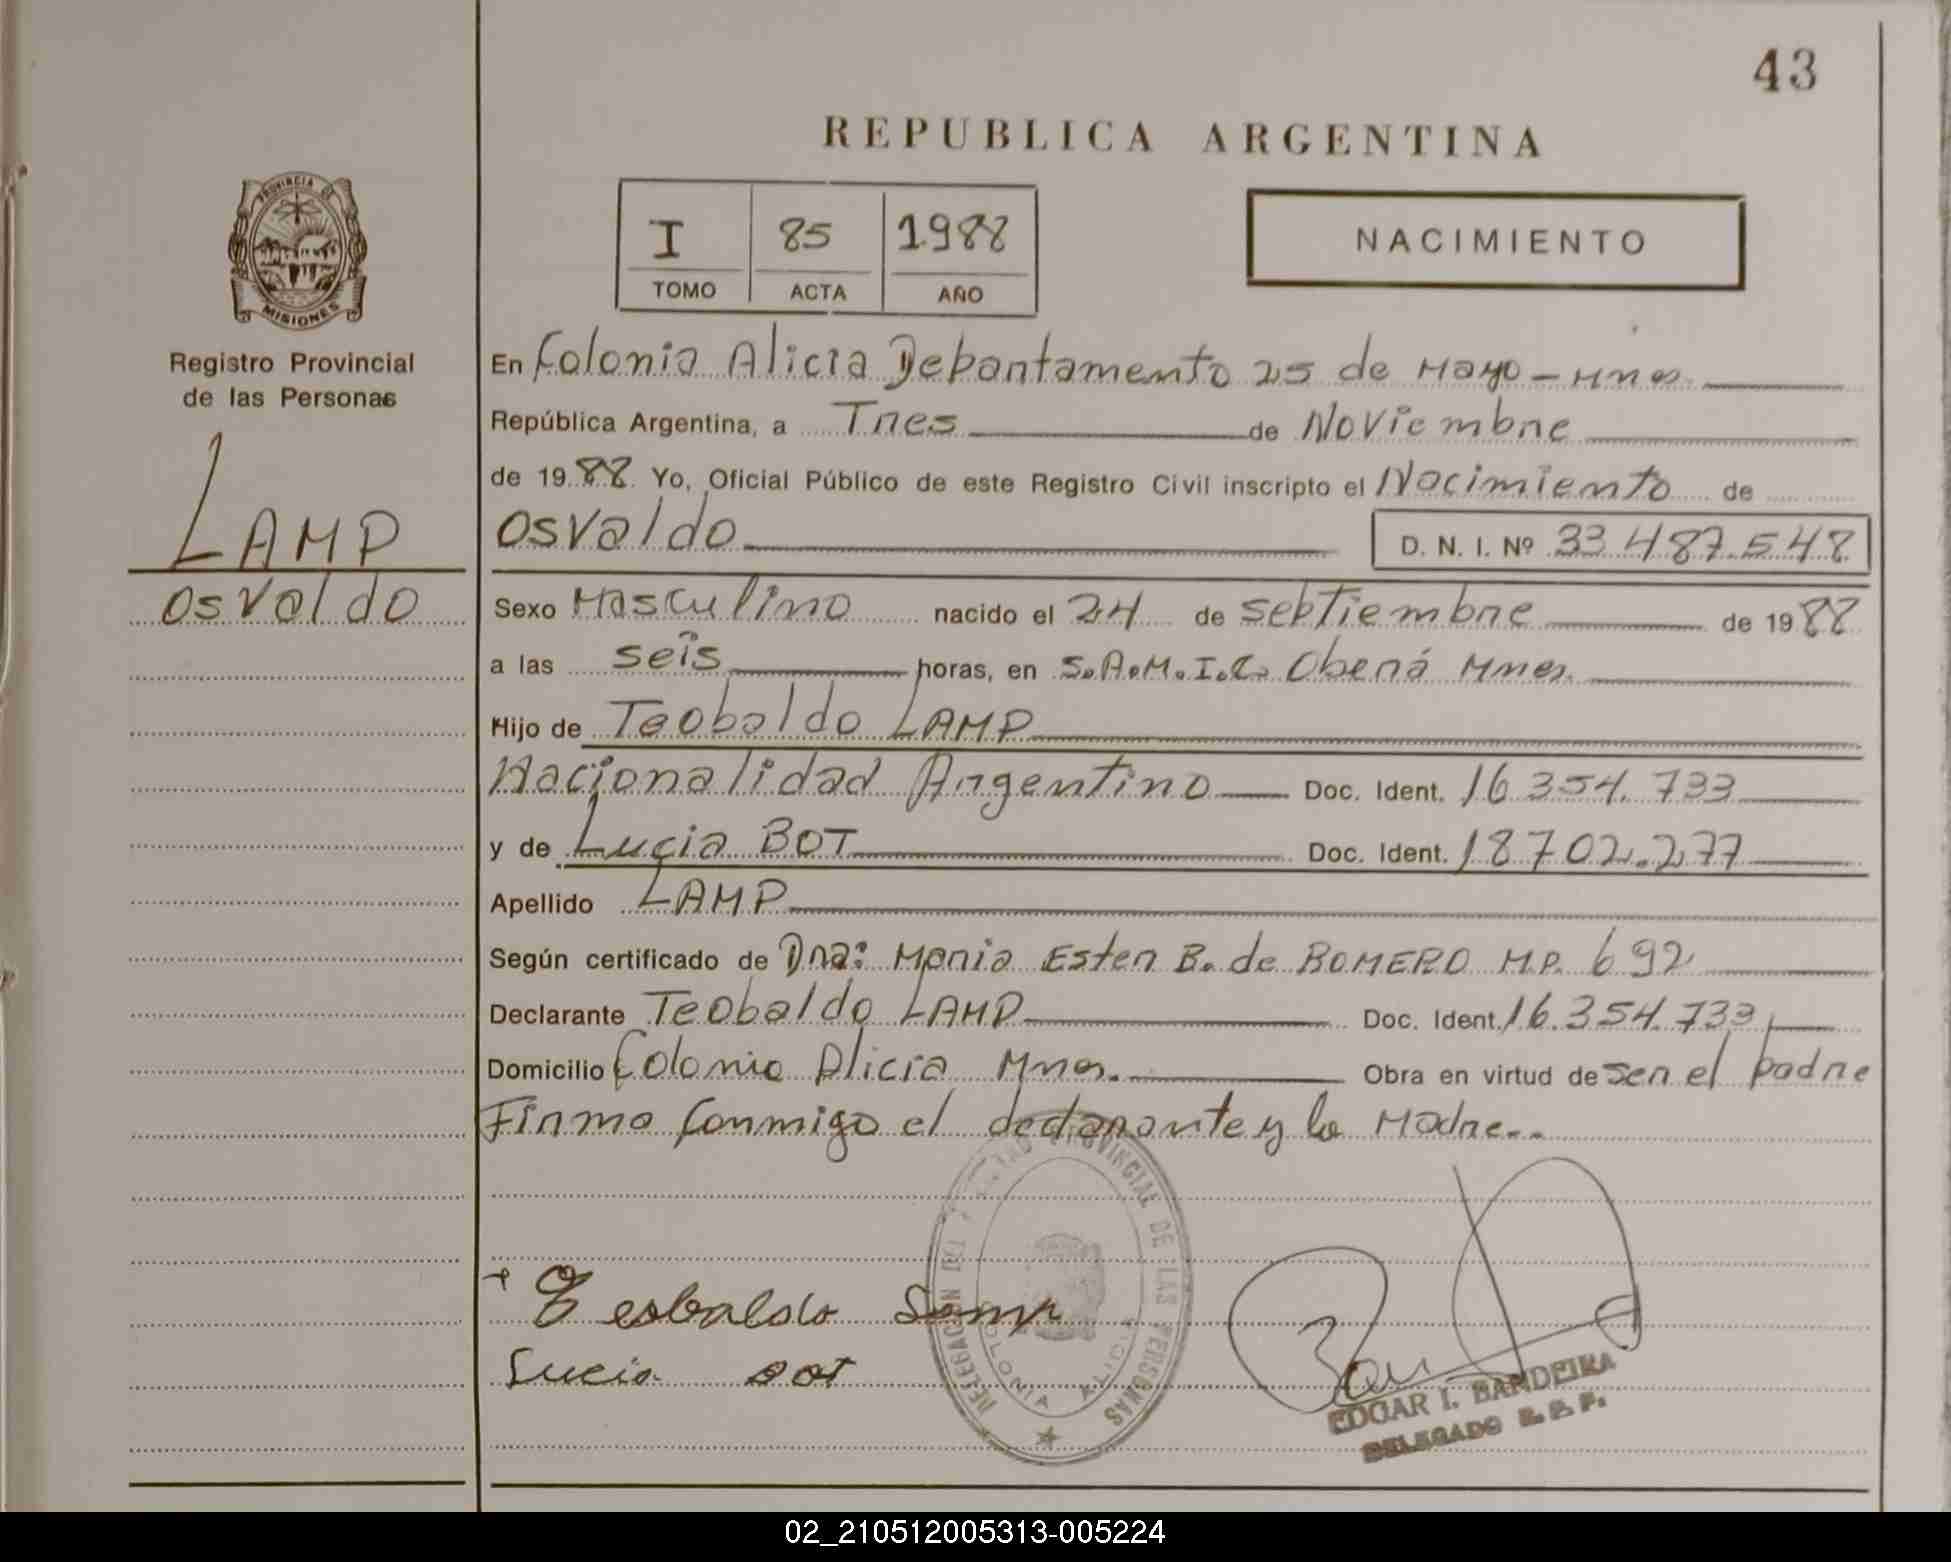 43
REPUBLICA ARGENTINA
I 85 1988
TOMO ACTA AÑO
NACIMIENTO
PROVINCIA DE
MISIONES
Registro Provincial
de las Personas
LAMP
Osvaldo
En Colonia Alicia Departamento 25 de Mayo - Mnes.
República Argentina, a Tres de Noviembre
de 1988 Yo, Oficial Público de este Registro Civil inscripto el Nacimiento de
Osvaldo D. N. I. Nº 33.487.548
Sexo Masculino nacido el 24 de septiembre de 1988
a las seis horas, en S.A.M.I.C. Oberá Mnes.
Hijo de Teobaldo LAMP
Nacionalidad Argentino Doc. Ident. 16.354.733
y de Lucia BOT Doc. Ident. 18702.277
Apellido LAMP
Según certificado de Dra: Maria Ester B. de ROMERO M.P. 692
Declarante Teobaldo LAMP Doc. Ident. 16.354.733
Domicilio Colonia Alicia Mnes. Obra en virtud de ser el padre
Firma conmigo el declarante y la Madre..
DELEGACION DEL PROVINCIAL DE LAS PERSONAS
COLONIA ALICIA
Teobaldo Lamp
Lucia BOT
EDGAR I. BANDEIRA
DELEGADO R. P. P.
02_210512005313-005224